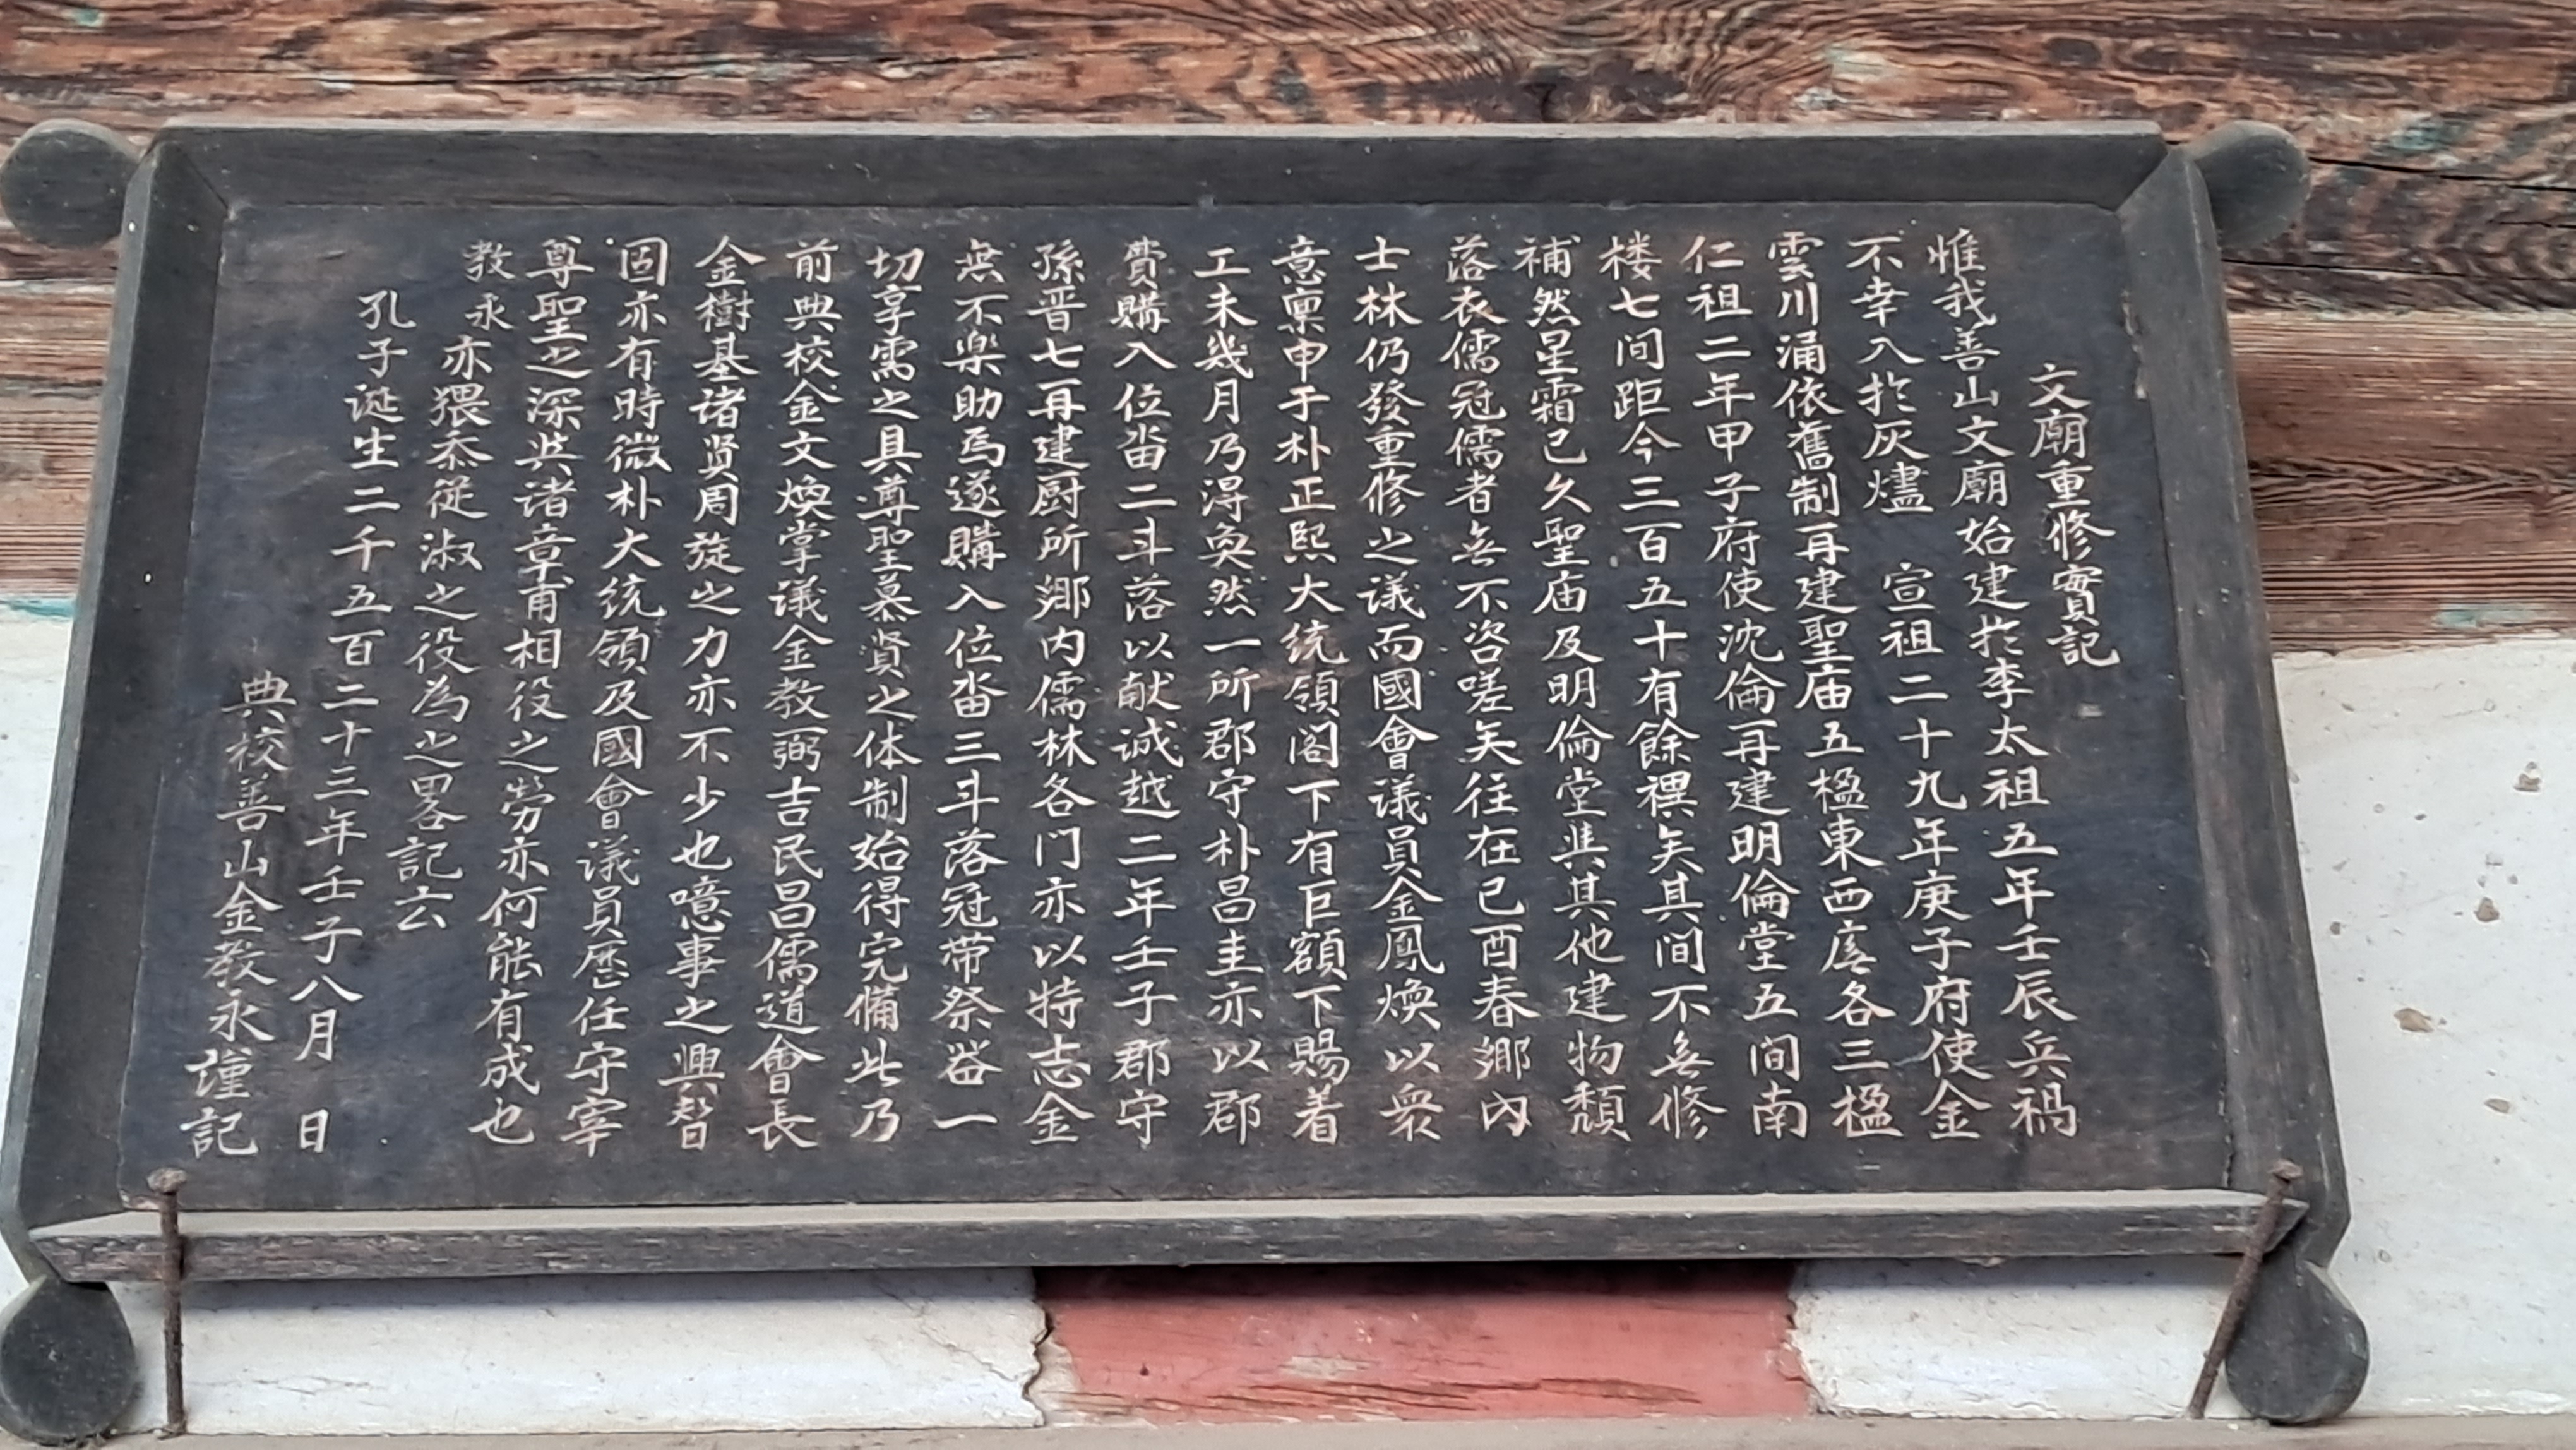 文廟重修實記
惟我善山文廟始建扵李太祖五年壬辰兵禍
不幸入扵灰燼 宣祖二十九年庚子府使金
雲川涌依舊制再建聖庙五楹東西庑各三楹
仁祖二年甲子府使沈倫再建明倫堂五间南
楼七间距今三百五十有餘禩矣其间不無修
補然星霜已久聖庙及明倫堂與其他建物頽
落衣儒冠儒者無不咨嗟矣往在己酉春鄉內
士林仍發重修之議而國會議員金鳳煥以衆
意稟申于朴正熙大统領阁下有巨額下賜着
工未幾月乃淂奐然一所郡守朴昌圭亦以郡
費購入位畓二斗落以献诚越二年壬子郡守
孫晋七再建厨所鄉内儒林各门亦以特志金
無不楽助焉遂購入位畓三斗落冠带祭器一
切享需之具尊聖慕賢之体制始得完備此乃
前典校金文煥掌議金教弼吉民昌儒道會長
金樹基诸贤周旋之力亦不少也噫事之興替
固亦有時微朴大统領及國會議員歷任守宰
尊聖之深與诸章甫相役之勞亦何能有成也
教永亦猥忝從淑之役為之畧記云
孔子诞生二千五百二十三年壬子八月 日
典校善山金教永謹記